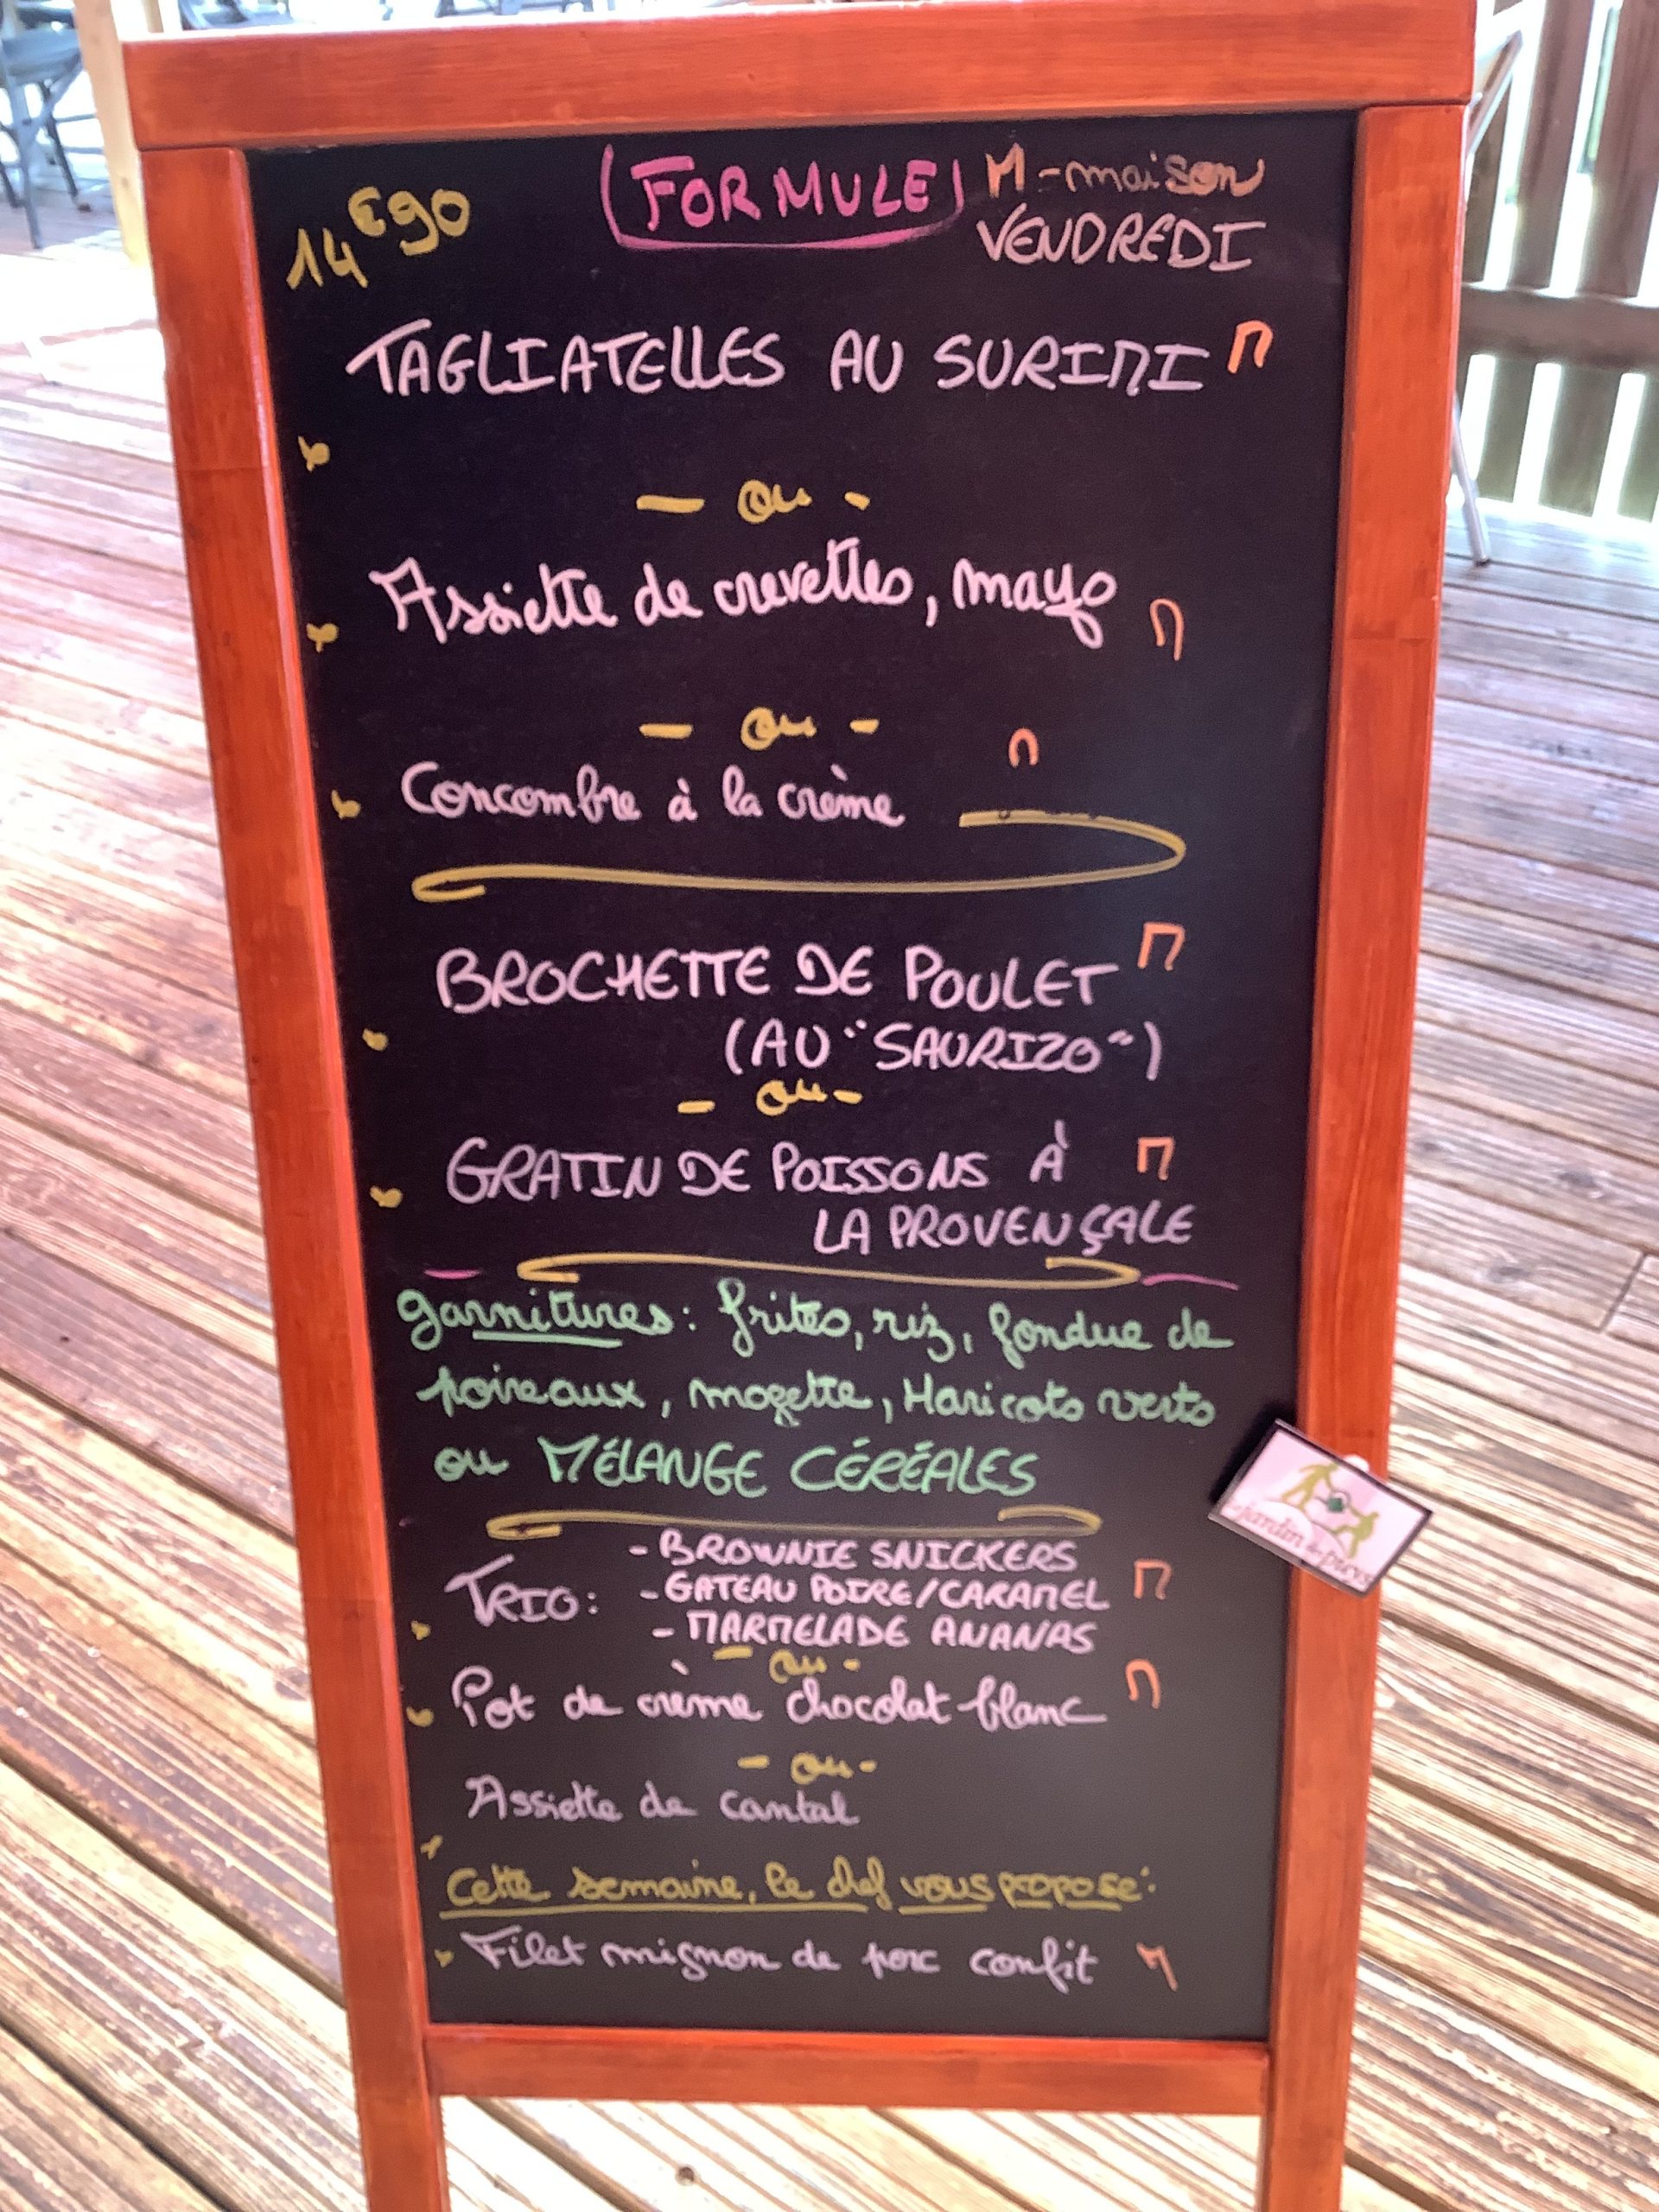 14€90 FORMULE M-maison
VENDREDI
TAGLIATELLES AU SURIMI M
- ou -
Assiette de crevettes, mayo M
- ou -
M
Concombre à la crème
BROCHETTE DE POULET M
(AU "SAURIZO")
- ou -
GRATIN DE POISSONS À M
LA PROVENÇALE
garnitures : frites, riz, fondue de
poireaux, mogette, Haricots verts
ou MÉLANGE CÉRÉALES
- BROWNIE SNICKERS
TRIO: - GATEAU POIRE/CARAMEL M
- MARMELADE ANANAS
- ou -
Pot de crème chocolat blanc M
- ou -
Assiette de cantal
Cette semaine, le chef vous propose :
Filet mignon de porc confit M
jardin